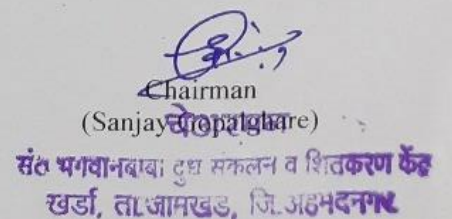 Chairman
(Sanjay Gopalghare)
चेअरमन
संत भगवानबाबा दुध संकलन व शितकरण केंद्र
खर्डा, ता.जामखेड, जि.अहमदनगर